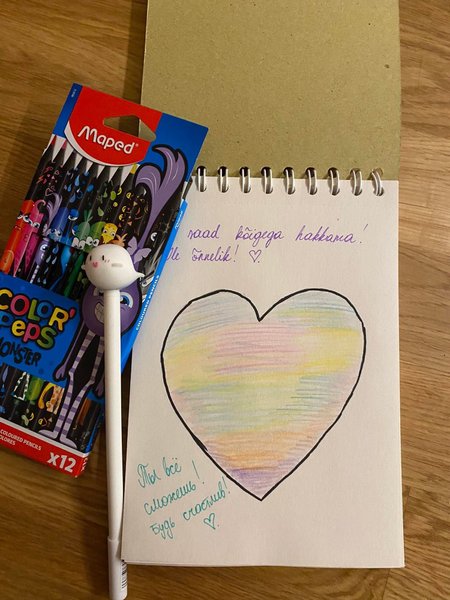 Maped
COLOR'
Peps
MONSTER
COLOURED PENCILS
x12
saad kõigega hakkama!
õnnelik! ♡
Ты всё
сможешь!
Будь счастлив!
♡